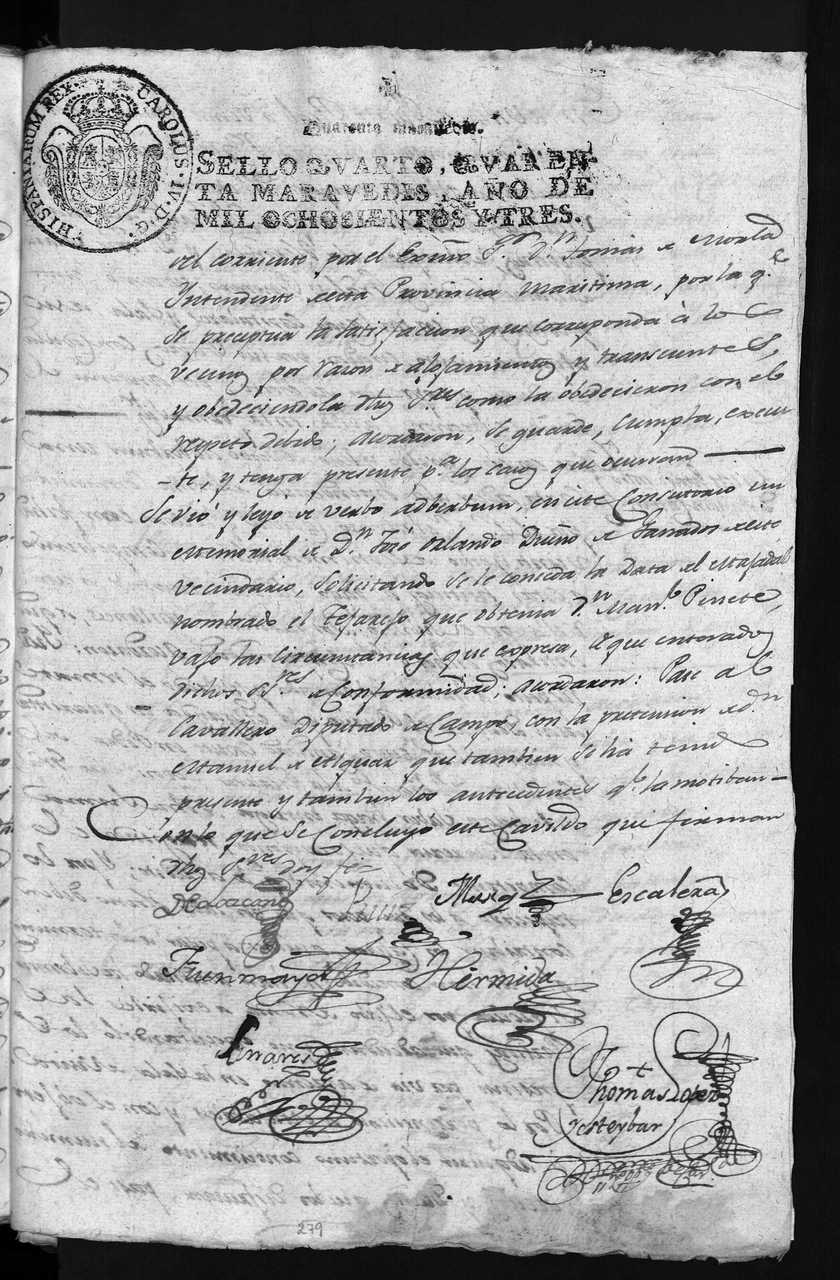 HISPANIARUM REX. CAROLUS. IV. D. G.
Quarenta maravedis.
SELLO QVARTO, QVAREN-
TA MARAVEDIS, AÑO DE
MIL OCHOCIENTOS Y TRES.
del corriente por el Exmo Sr. Dn. Tomas de Morla
Intendente de esta Provincia Maritima, por la qe.
se preceptua la satisfacion que corresponda à los
vecinos por razon de alojamientos y transeuntes,
y obedeciendola dhos Sres. como la obedecieron con el
respeto debido; acordaron, se guarde, cumpla, execu-
-te, y tenga presente pa. los casos que ocurran
Se vió y leyó de verbo adberbum, en este Consistorio un
Memorial de Dn. José Orlando Dueño de Ganados de este
vecindario, solicitando se le conceda la Data del Majadal
nombrado el Tejarejo que obtenia Dn. Manl. Pinete,
vajo las circunstancias que expresa, de que enterados
dichos Sres. de Conformidad; acordaron: Pase al
Cavallero Diputado de Campo, con la pretension de Dn.
Manuel de que tambien se há tenido
presente y tambien los antecedentes qe. la motiban
Con lo que se Concluyó este Cavildo que firman
dhos Sres. doy fee
Marqz Escalera
Fuenmayor Hermida
Linares
Thomas Lopez
de Steybar
279